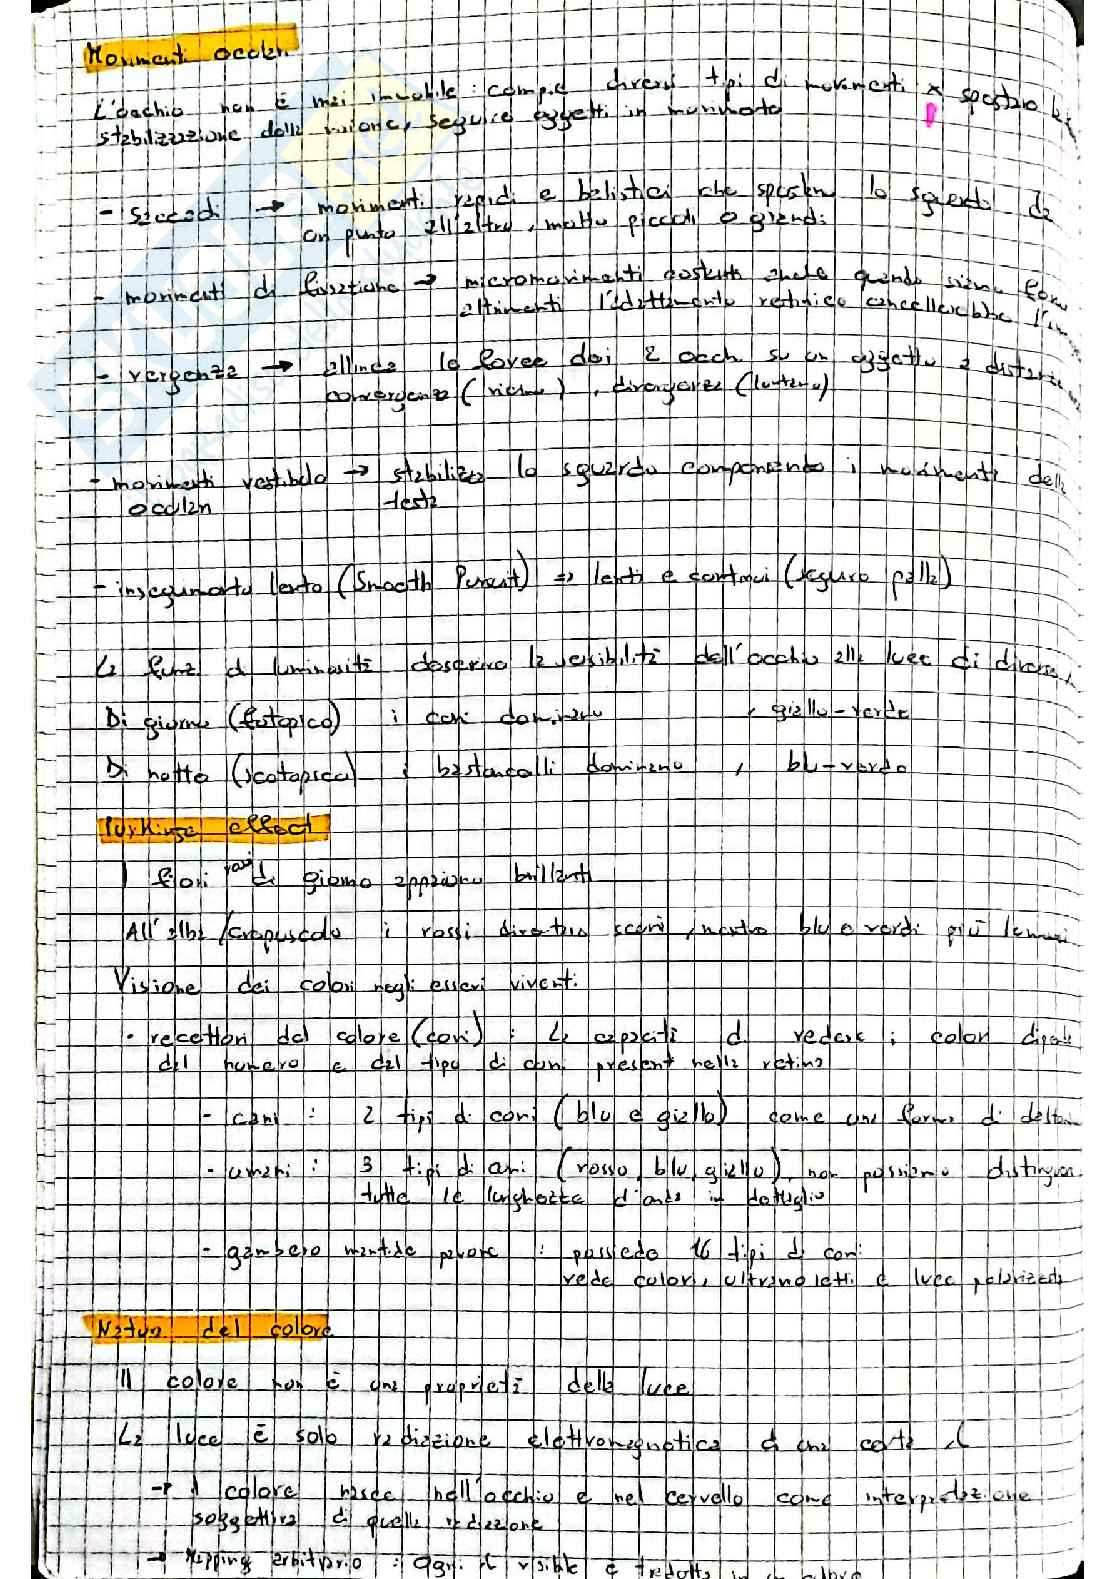 Movimenti oculari
L'occhio non è mai immobile: compie diversi tipi di movimenti x spostare
stabilizzazione della visione, seguire oggetti in movimento
- saccadi → movimenti rapidi e balistici che spostano lo sguardo da
un punto all'altro, molto piccoli o grandi
- movimenti di fissazione → micromovimenti costanti anche quando siamo
altrimenti l'adattamento retinico cancellerebbe
- vergenza → allinea le fovee dei 2 occhi su un oggetto a distanza
convergenza (vicino), divergenza (lontano)
- movimenti vestibolo → stabilizza lo sguardo compensando i movimenti della
oculari testa
- inseguimento lento (Smooth Pursuit) ⇒ lenti e continui (seguire palla)
La funz di luminosità descrive la sensibilità dell'occhio alla luce di diversa
Di giorno (fotopica) i coni dominano , giallo-verde
Di notte (scotopica) i bastoncelli dominano , blu-verde
Purkinje effect
I fiori rossi di giorno appaiono brillanti
All'alba/crepuscolo i rossi diventano scuri, mentre blu e verdi più luminosi
Visione dei colori negli esseri viventi
• recettori del colore (coni): La capacità di vedere i colori dipende
dal numero e dal tipo di coni presenti nella retina
- cani: 2 tipi di coni (blu e giallo) come una forma di
- umani: 3 tipi di coni (rosso, blu, giallo), non possiamo distinguere
tutte le lunghezze d'onda in dettaglio
- gambero mantide pavone: possiede 16 tipi di coni
vede colori, ultravioletti e luce polarizzata
Natura del colore
Il colore non è una proprietà della luce
La luce è solo radiazione elettromagnetica di una certa λ
→ il colore nasce nell'occhio e nel cervello come interpretazione
soggettiva di quella radiazione
→ Mapping arbitrario: ogni λ visibile è tradotta in un colore